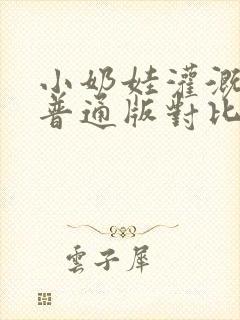 小奶娃灌溉
普通版對比
雲子犀